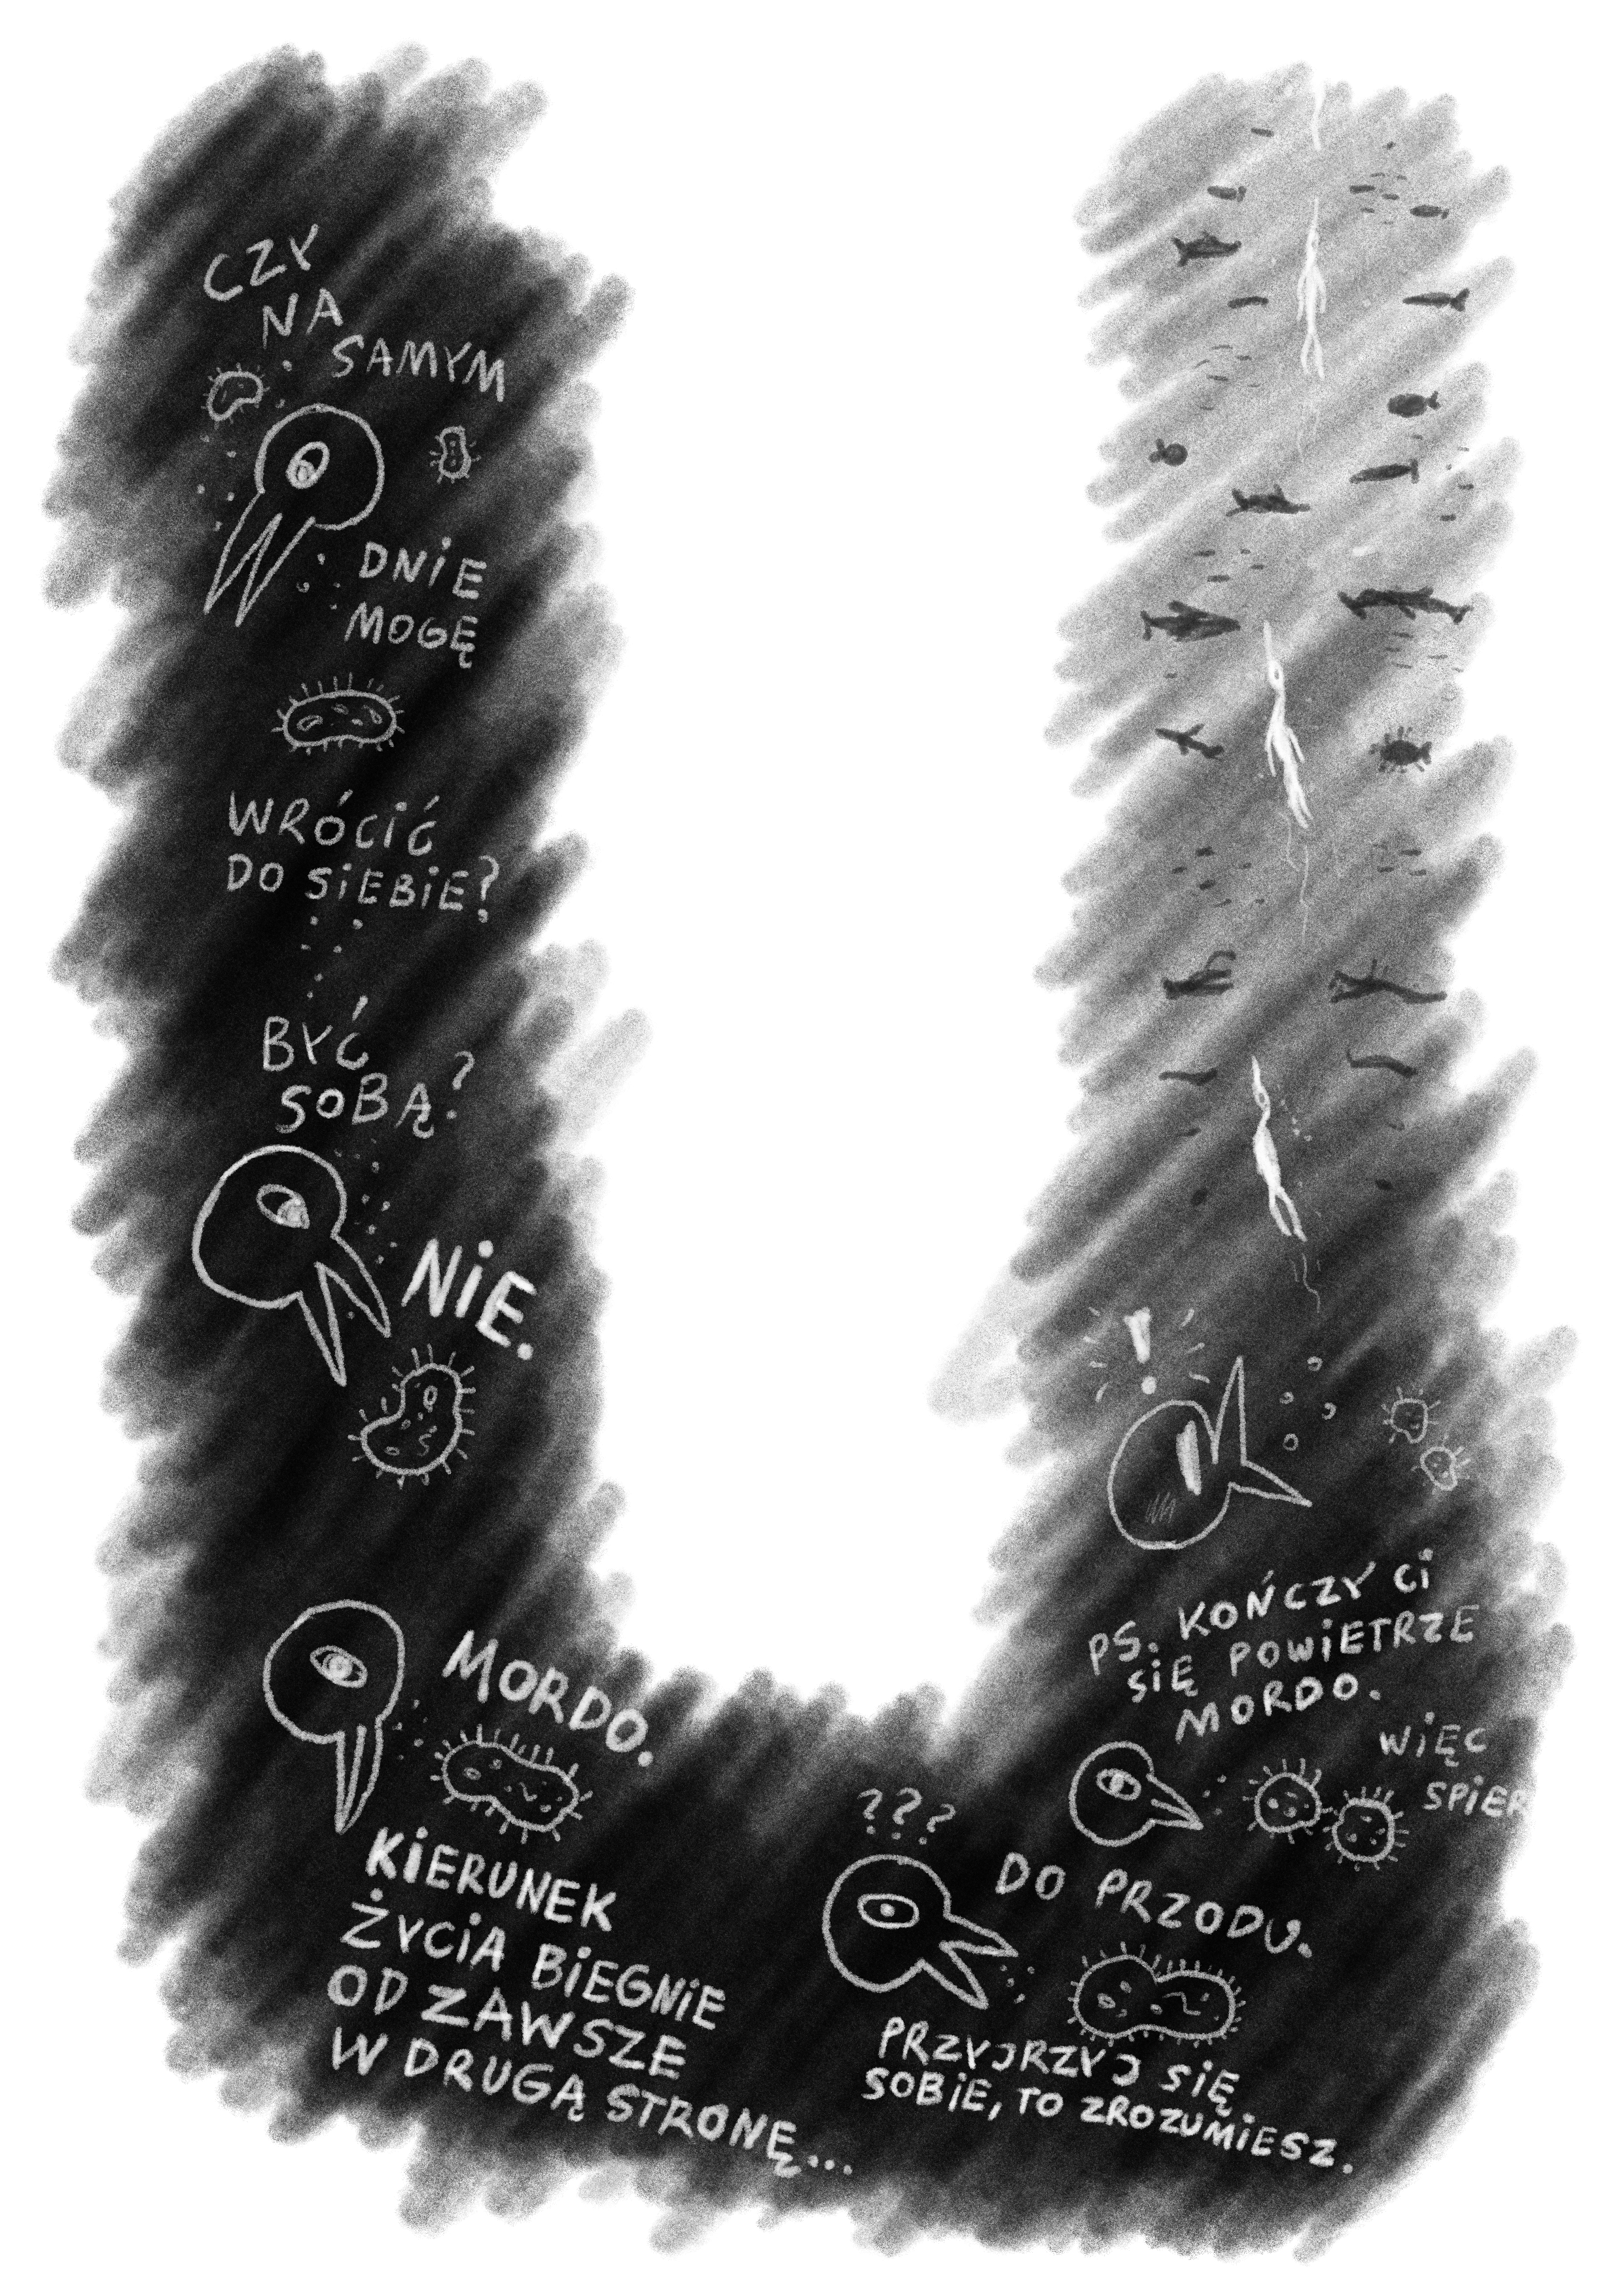 CZY
NA
SAMYM
DNIE
MOGĘ
WRÓCIĆ
DO SIEBIE?
BYĆ
SOBĄ?
NIE.
MORDO.
KIERUNEK
ŻYCIA BIEGNIE
OD ZAWSZE
W DRUGĄ STRONĘ...
???
DO PRZODU.
PRZYJRZYJ SIĘ
SOBIE, TO ZROZUMIESZ.
PS. KOŃCZY CI
SIĘ POWIETRZE
MORDO.
WIĘC
SPIER
!